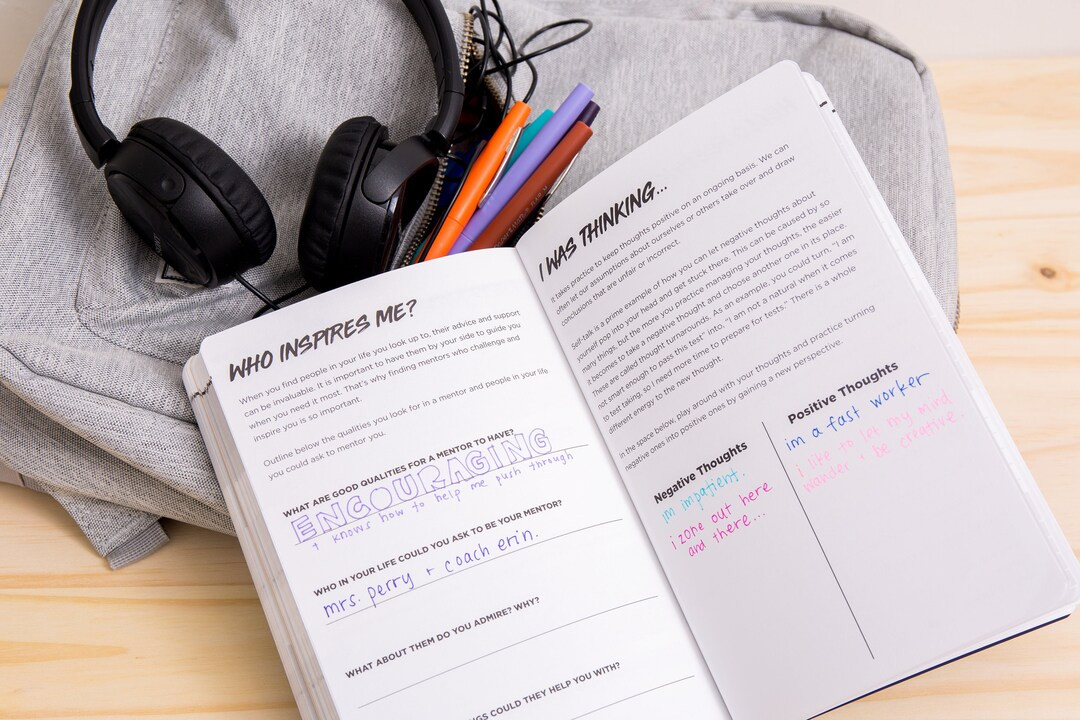 WHO INSPIRES ME?
When you find people in your life you look up to, their advice and support
can be invaluable. It is important to have them by your side to guide you
when you need it most. That's why finding mentors who challenge and
inspire you is so important.
Outline below the qualities you look for in a mentor and people in your life
you could ask to mentor you.
WHAT ARE GOOD QUALITIES FOR A MENTOR TO HAVE?
ENCOURAGING
+ knows how to help me push through
WHO IN YOUR LIFE COULD YOU ASK TO BE YOUR MENTOR?
mrs. perry + coach erin.
WHAT ABOUT THEM DO YOU ADMIRE? WHY?
COULD THEY HELP YOU WITH?
I WAS THINKING...
It takes practice to keep thoughts positive on an ongoing basis. We can
often let our assumptions about ourselves or others take over and draw
conclusions that are unfair or incorrect.
Self-talk is a prime example of how you can let negative thoughts about
yourself pop into your head and get stuck there. This can be caused by so
many things, but the more you practice managing your thoughts, the easier
it becomes to take a negative thought and choose another one in its place.
These are called thought turnarounds. As an example, you could turn, "I am
not smart enough to pass this test" into, "I am not a natural when it comes
to test taking, so I need more time to prepare for tests." There is a whole
different energy to the new thought.
In the space below, play around with your thoughts and practice turning
negative ones into positive ones by gaining a new perspective.
Negative Thoughts
im impatient.
i zone out here
and there...
Positive Thoughts
im a fast worker
i like to let my mind
wander + be creative.